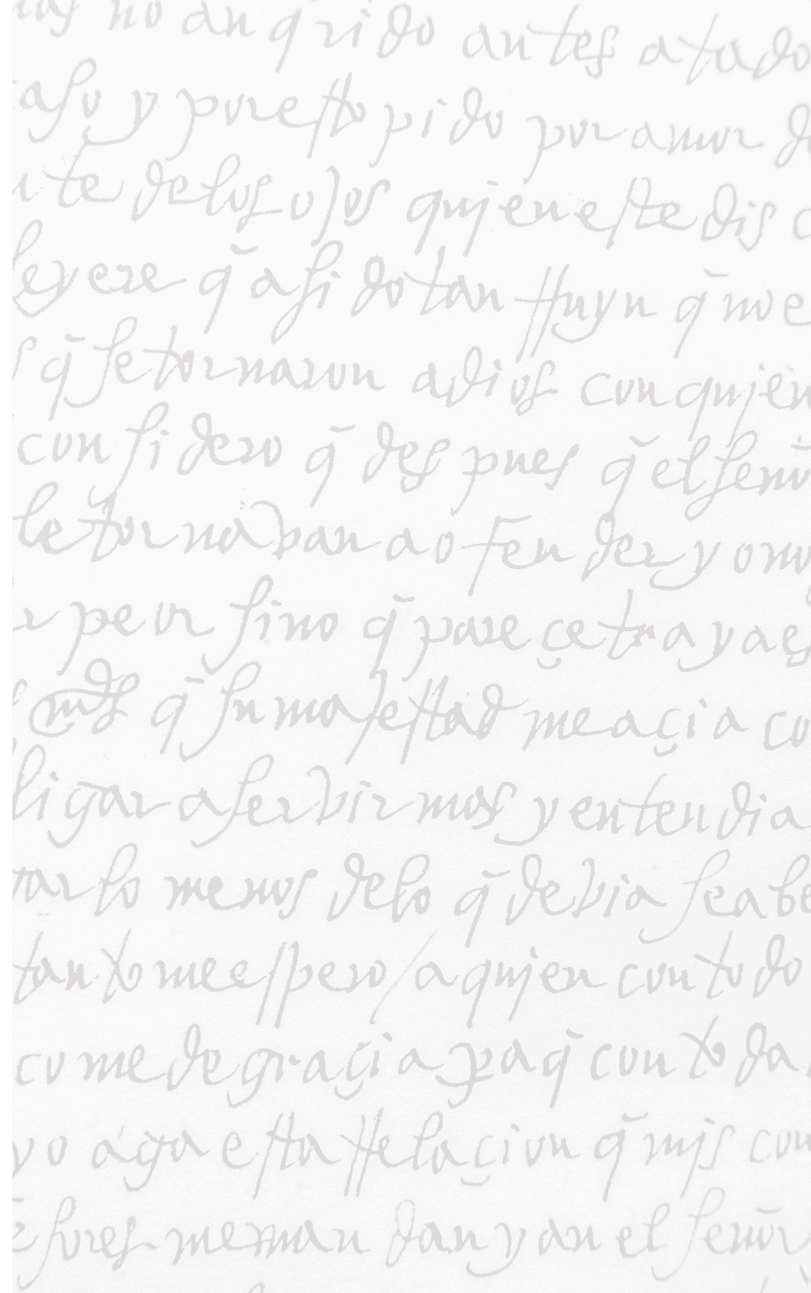 no an q̄rido antes atado
caso y por esto pido por amor d
nte delos ojos quien este dis c
leyere q̄ a sido tan rruyn q̄ no e
s q̄ se tornaron a dios con quien
considero q̄ despues q̄ el señ
le tornavan a ofender y o no
r peor sino q̄ pareçe traya es
mds q̄ su majestad me açia co
ligar a servir mas y entendia
tar lo menos de lo q̄ devia sea be
tanto me espero / a quien con todo
co me de graçia pa q̄ con toda
yo aga esta rrelaçion q̄ mis con
esores me man dan y an el señor